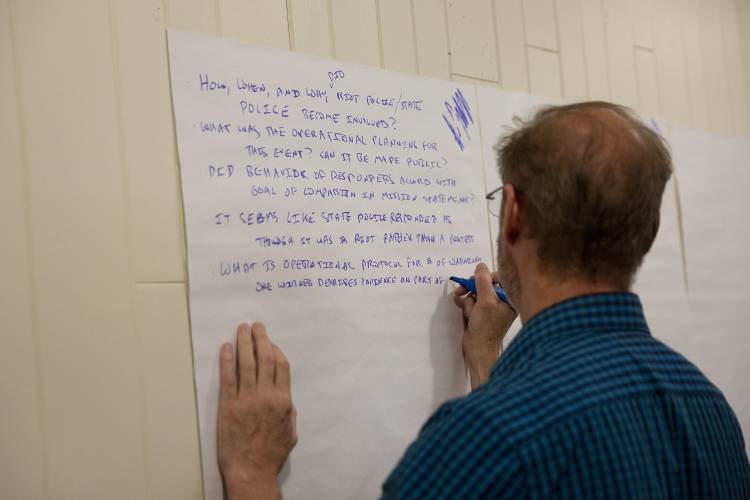 DID
HOW, WHEN, AND WHY, RIOT POLICE/STATE
POLICE BECOME INVOLVED?
WHAT WAS THE OPERATIONAL PLANNING FOR
THIS EVENT? CAN IT BE MADE PUBLIC?
DID BEHAVIOR OF RESPONDERS ACCORD WITH
GOAL OF COMPASSION IN MISSION STATEMENT?
IT SEEMS LIKE STATE POLICE RESPONDED AS
THOUGH IT WAS A RIOT RATHER THAN A PROTEST
WHAT IS OPERATIONAL PROTOCOL FOR # OF WARNINGS
ONE WITNESS DESCRIBES ON PART OF